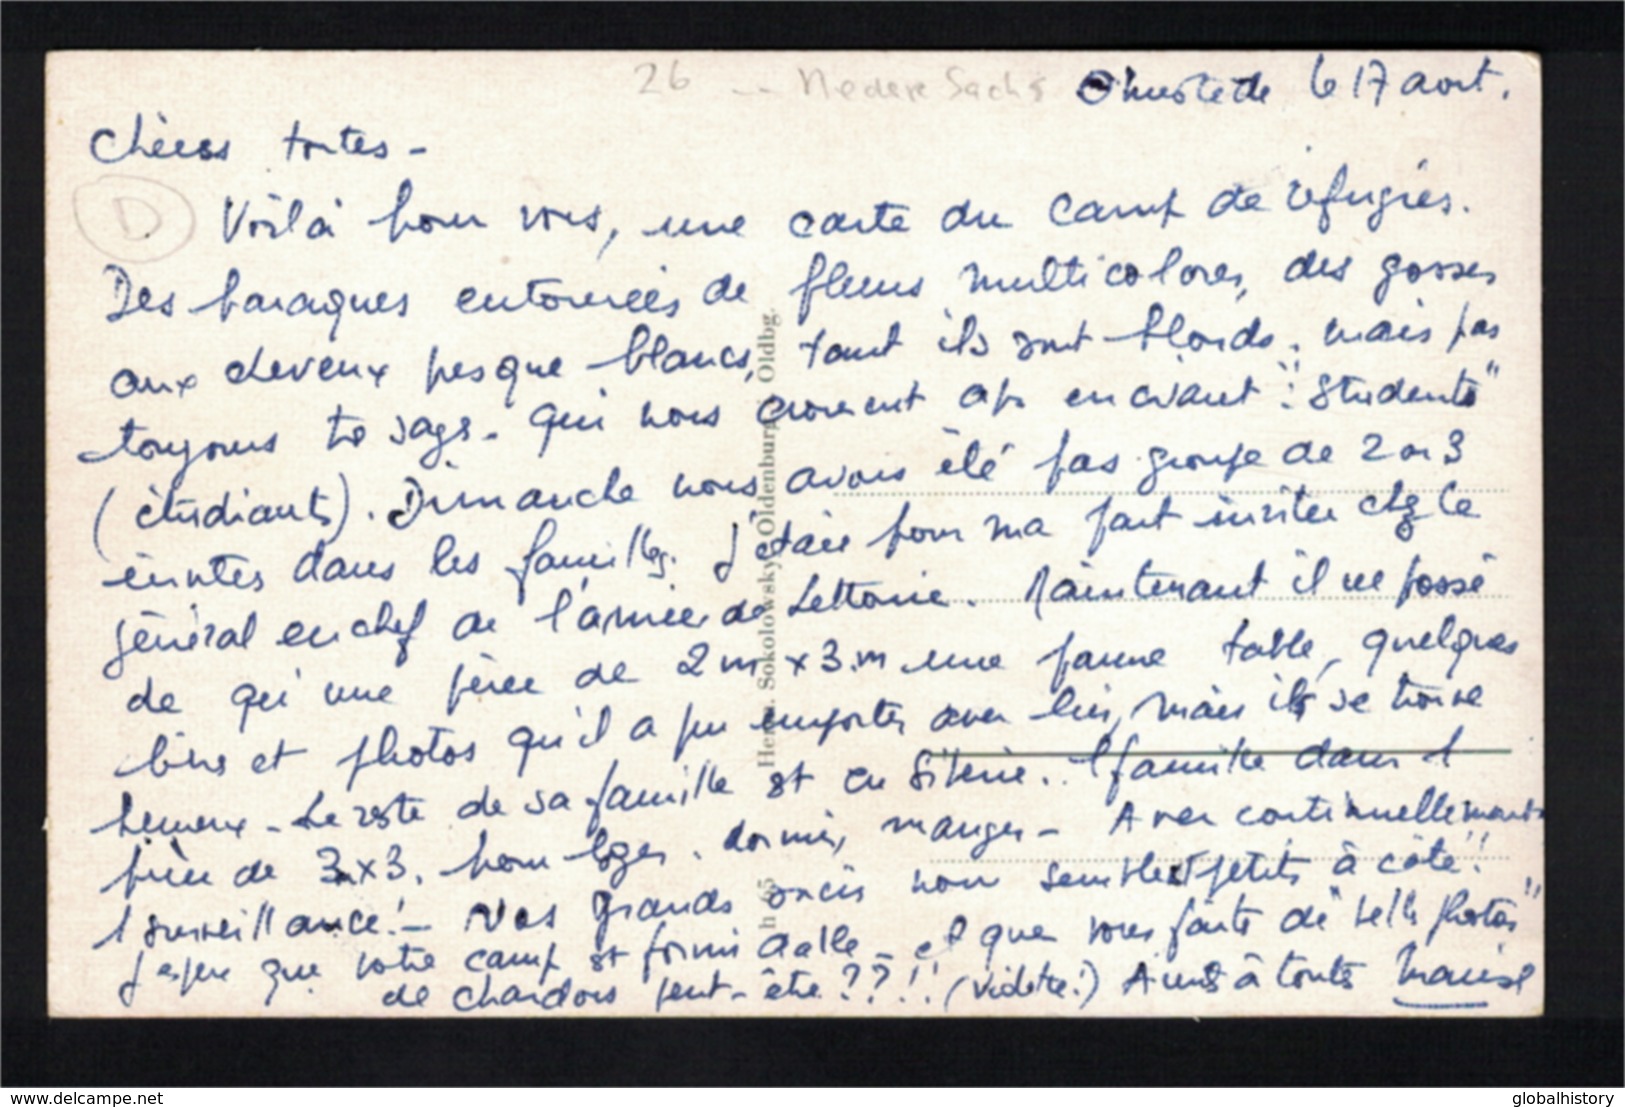 26 -- Niedere Sachs Ohmstede le 17 août.
Chères toutes -
D
Voilà pour vous, une carte du camp de réfugiés.
Des baraques entourées de fleurs multicolores, des gosses
aux cheveux presque blancs, tant ils sont blonds, mais pas
toujours tr sages - qui nous courent ap en criant : "Studenten"
(étudiants). Dimanche nous avons été pas groupe de 2 ou 3
invités dans les familles. J'étais pour ma part invitée chez le
général en chef de l'armée de Lettonie. Maintenant il ne possè
de qu'une pièce de 2m x 3m une pauvre table, quelques
livres et photos qu'il a pu emporter avec lui, mais il se trouve
heureux - Le reste de sa famille est en Sibérie. 1 famille dans 1
pièce de 3x3, pour loger, dormir, manger - Avec continuellement
1 surveillance! - Nos grands soucis nous semblent petits à côté!!
J'espère que votre camp est formidable - et que vous faites de "belles photos"
de chardons peut-être??!! (Violette!) Amts à toutes Marise
Herm. Sokolowsky, Oldenburg i. Oldbg.
h 65
delcampe.net
globalhistory